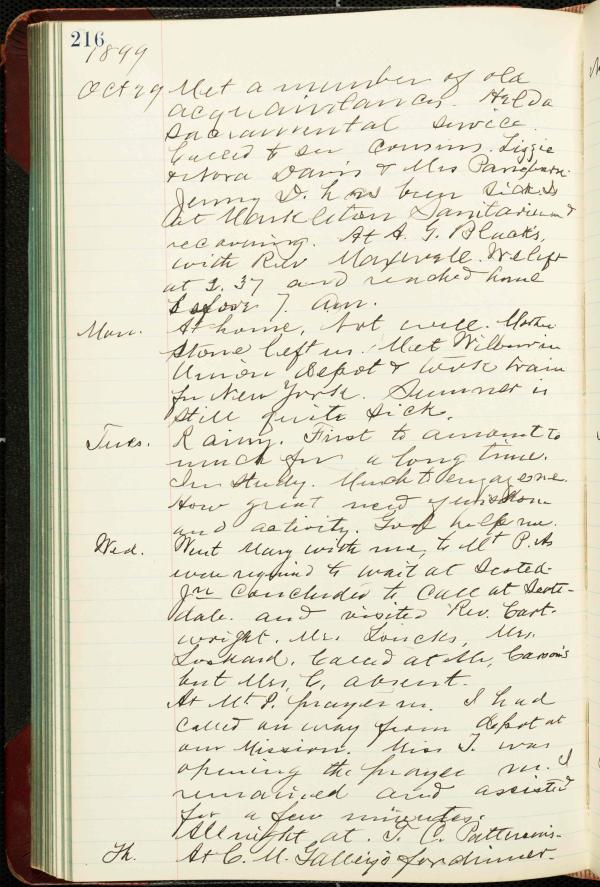 216
1899
Oct 29 Met a number of old
acquaintances. Held a
Sacramental service.
Called to see Cousins Lizzie
& Nora Davis & Mrs
Jenny D. has been sick is
at Markleton Sanitarium &
recovering. At A. G. Black's,
with Rev Maxwell. We left
at 3.37 and reached home
before 7. am.
Mon. At home, not well. Mother
Stone left us. Met Wilbur in
Union depot & took train
for New York. Sumner is
still quite sick.
Tues. Rainy. First to amount to
much for a long time.
In Study. Much to engage me.
How great need of wisdom
and activity. God help me.
Wed. Went Mary with me, to Mt P. As
were required to wait at Scotted.
Jn concluded to call at Scott-
dale. and visited Rev. Cart-
wright, Mrs. Loucks, Mrs.
Lockard. Called at Mr. Carson's
but Mrs. C. absent.
At Mt P. prayer m. I had
called on way from depot at
our Mission. Miss T. was
opening the prayer m. I
remained and assisted
for a few minutes.
All night at T. C. Patterson's.
Th. At C. M. Galley's for dinner.